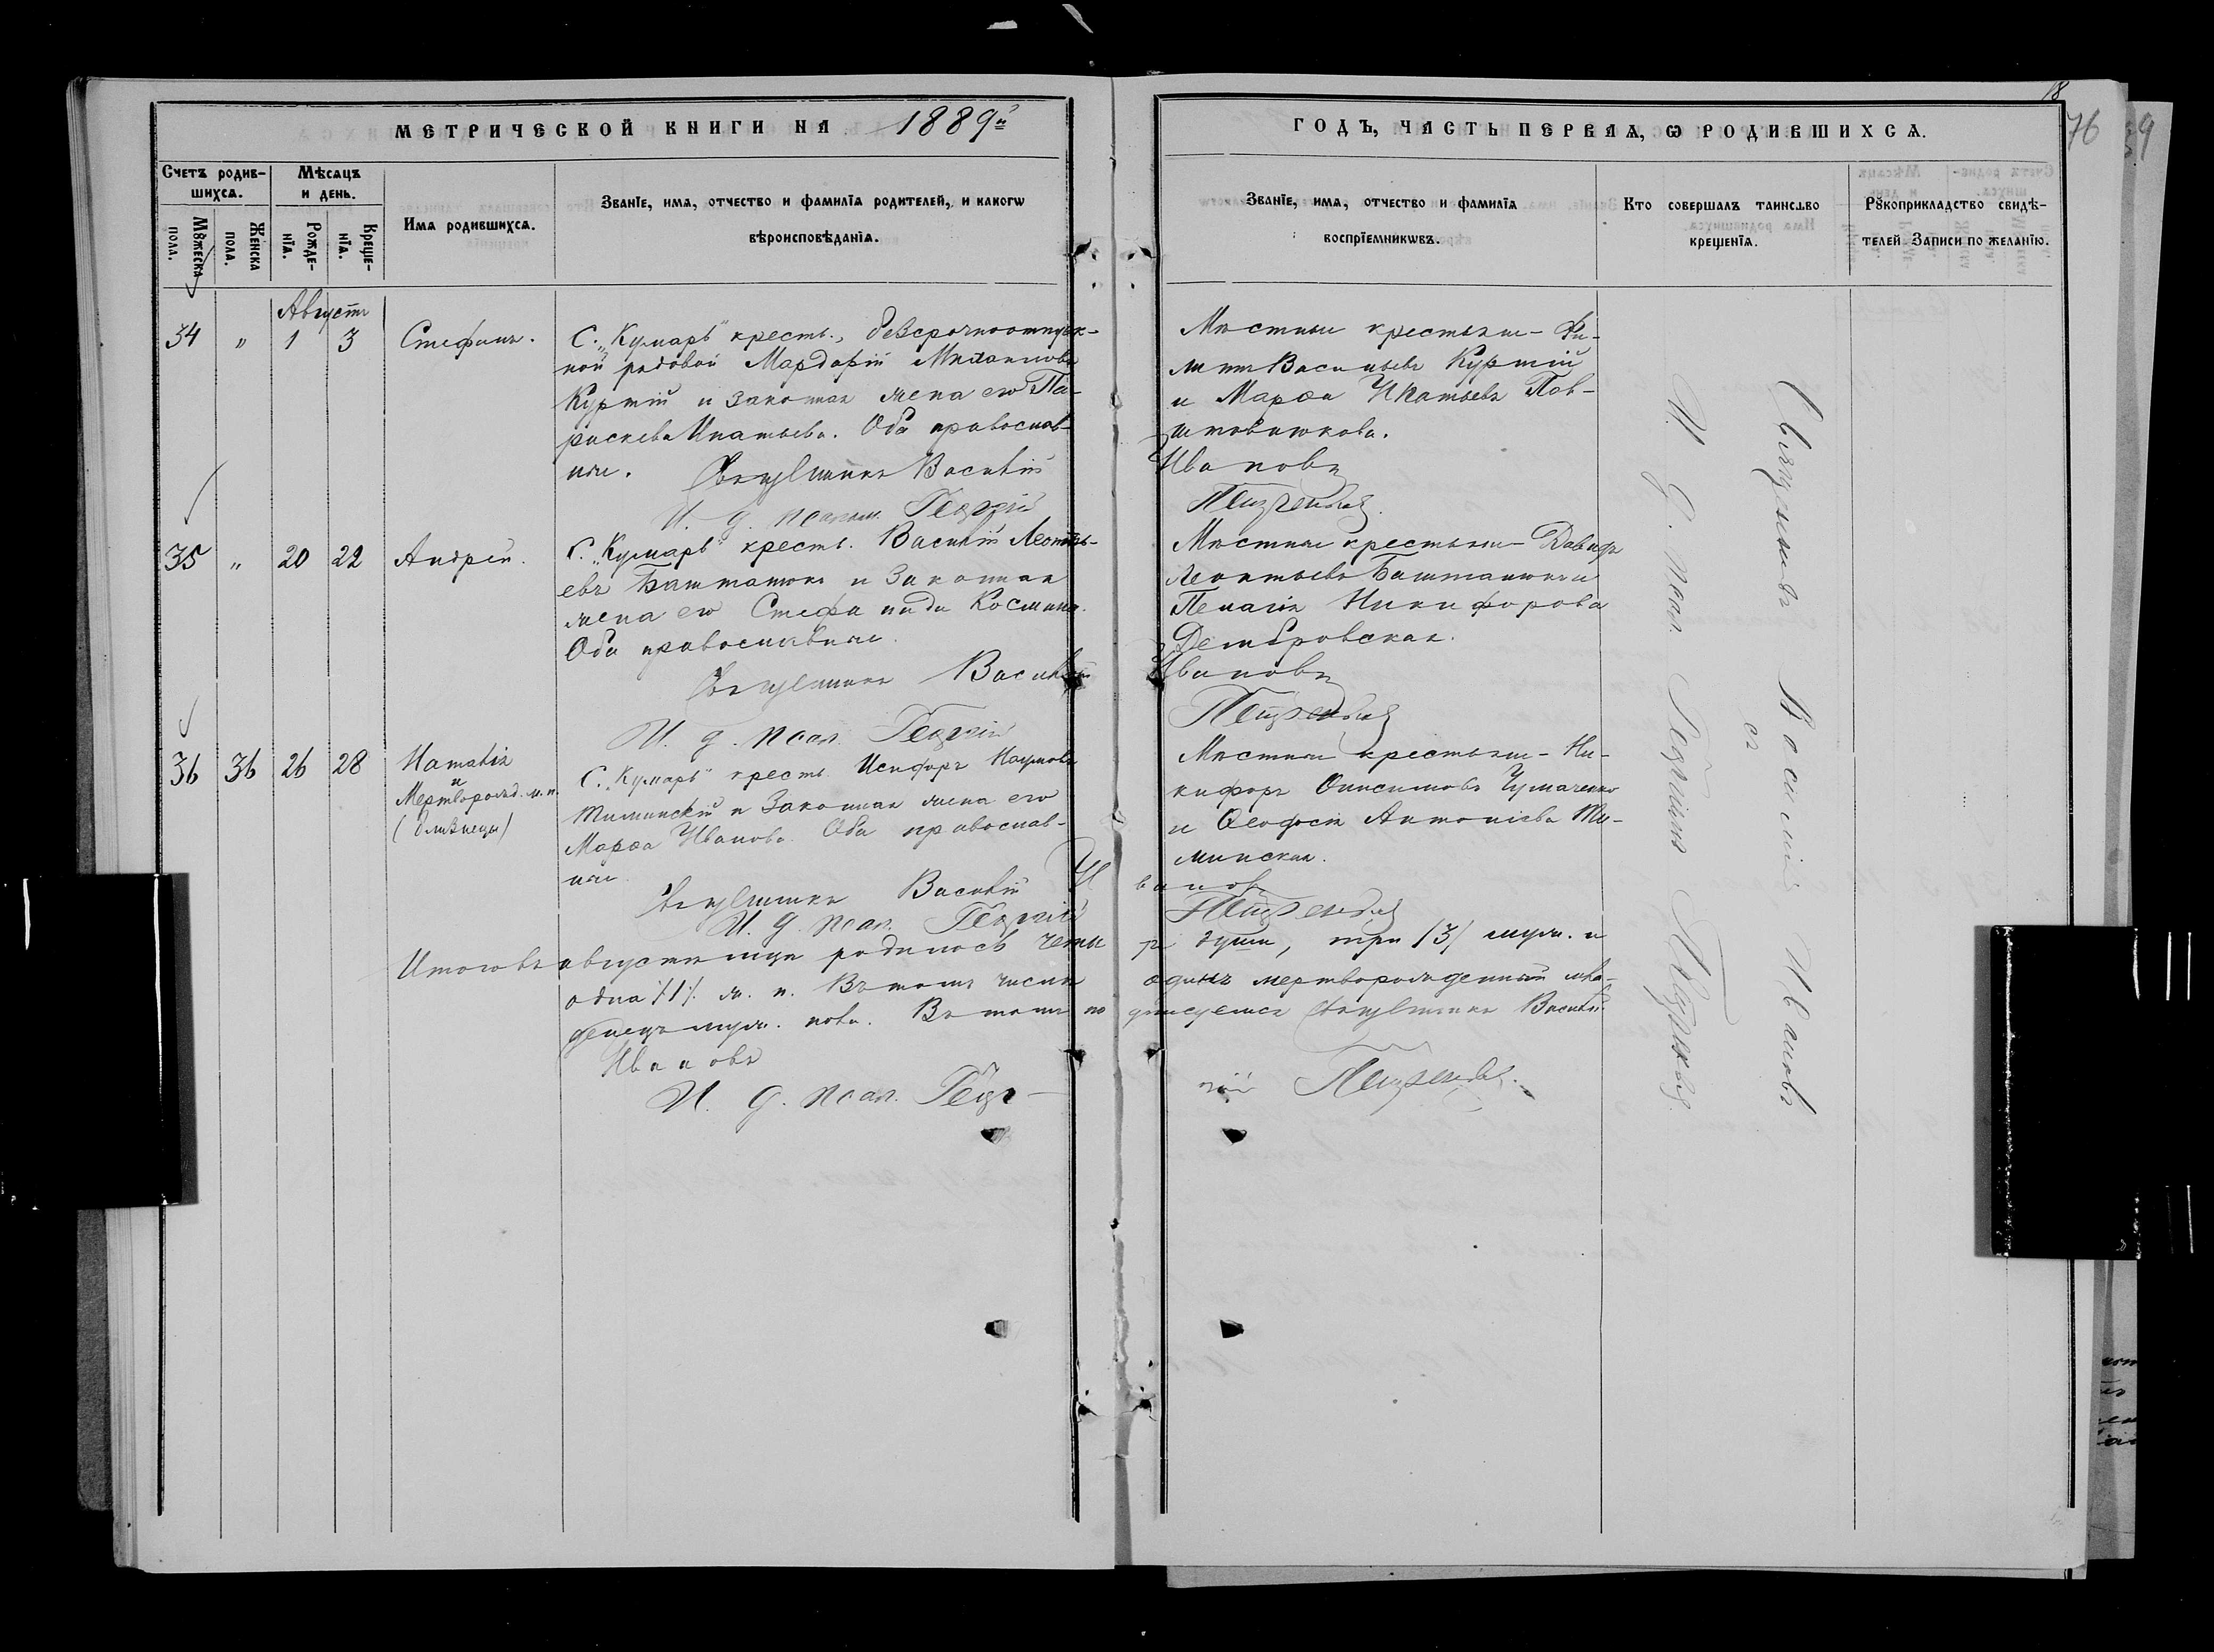 18
76
39
МЕТРИЧЕСКОЙ КНИГИ НА 1889й
ГОДЪ, ЧАСТЬ ПЕРВАЯ, Ѡ РОДИВШИХСѦ.
Счетъ родив-
шихсѧ.
Мꙋжеска
пола.
Женска
пола.
Мѣсѧцъ
и день.
Рожде-
нїѧ.
Креще-
нїѧ.
Имѧ родившихсѧ.
Званїе, имѧ, отчество и фамилїѧ родителей, и какогѡ
вѣроисповѣданїѧ.
Званїе, имѧ, отчество и фамилїѧ
воспрїемникѡвъ.
Кто совершалъ таинство
крещенїѧ.
Рꙋкоприкладство свидѣ-
телей Записи по желанїю.
Августъ
34 " 1 3 Стефанъ.
С. „Кумарь" кресть., безсрочноотпуск-
ной рядовой Мардарій Михаиловъ
Куртій и законная жена его Па-
раскева Игнатьева. Оба православ-
ные. Священникъ Василій
И. д. псалом. Георгій
Мѣстные крестьяне - Фи-
липпъ Васильевъ Куртій
и Марѳа Игнатьева
Ивановъ
35 " 20 22 Андрей.
С. „Кумарь" кресть. Василій Леонть-
евъ Баштанюкъ и законная
жена его Стефанида Космина.
Оба православные.
Священникъ Василій
И. д. псал. Георгій
Мѣстные крестьяне - Давидъ
Леонтьевъ Баштанюкъ и
Пелагія Никифорова
Домбровская.
Ивановъ
36 36 26 28 Наталія
и
Мертворожд. м. п.
(близнецы)
С. „Кумарь" кресть. Никифоръ Наумовъ
Тиминскій и законная жена его
Марѳа Иванова. Оба православ-
ные
Священникъ Василій И
И. д. псал. Георгій
Мѣстные крестьяне - Ни-
кифоръ Онисимовъ Чумаченко
и Ѳеодосія Антоніева Ти-
минская.
вановъ
Итого въ августѣ мцѣ родилось четы ре души, три /3/ муж. и
одна /1/ ж. п. Въ томъ числѣ одинъ мертворожденный мла-
денецъ муж. пола. Въ томъ по дписуемся Священникъ Василій
Ивановъ
И. д. псал. Георгій
Священникъ Василій Ивановъ
съ
И. д. псал. Георгіемъ